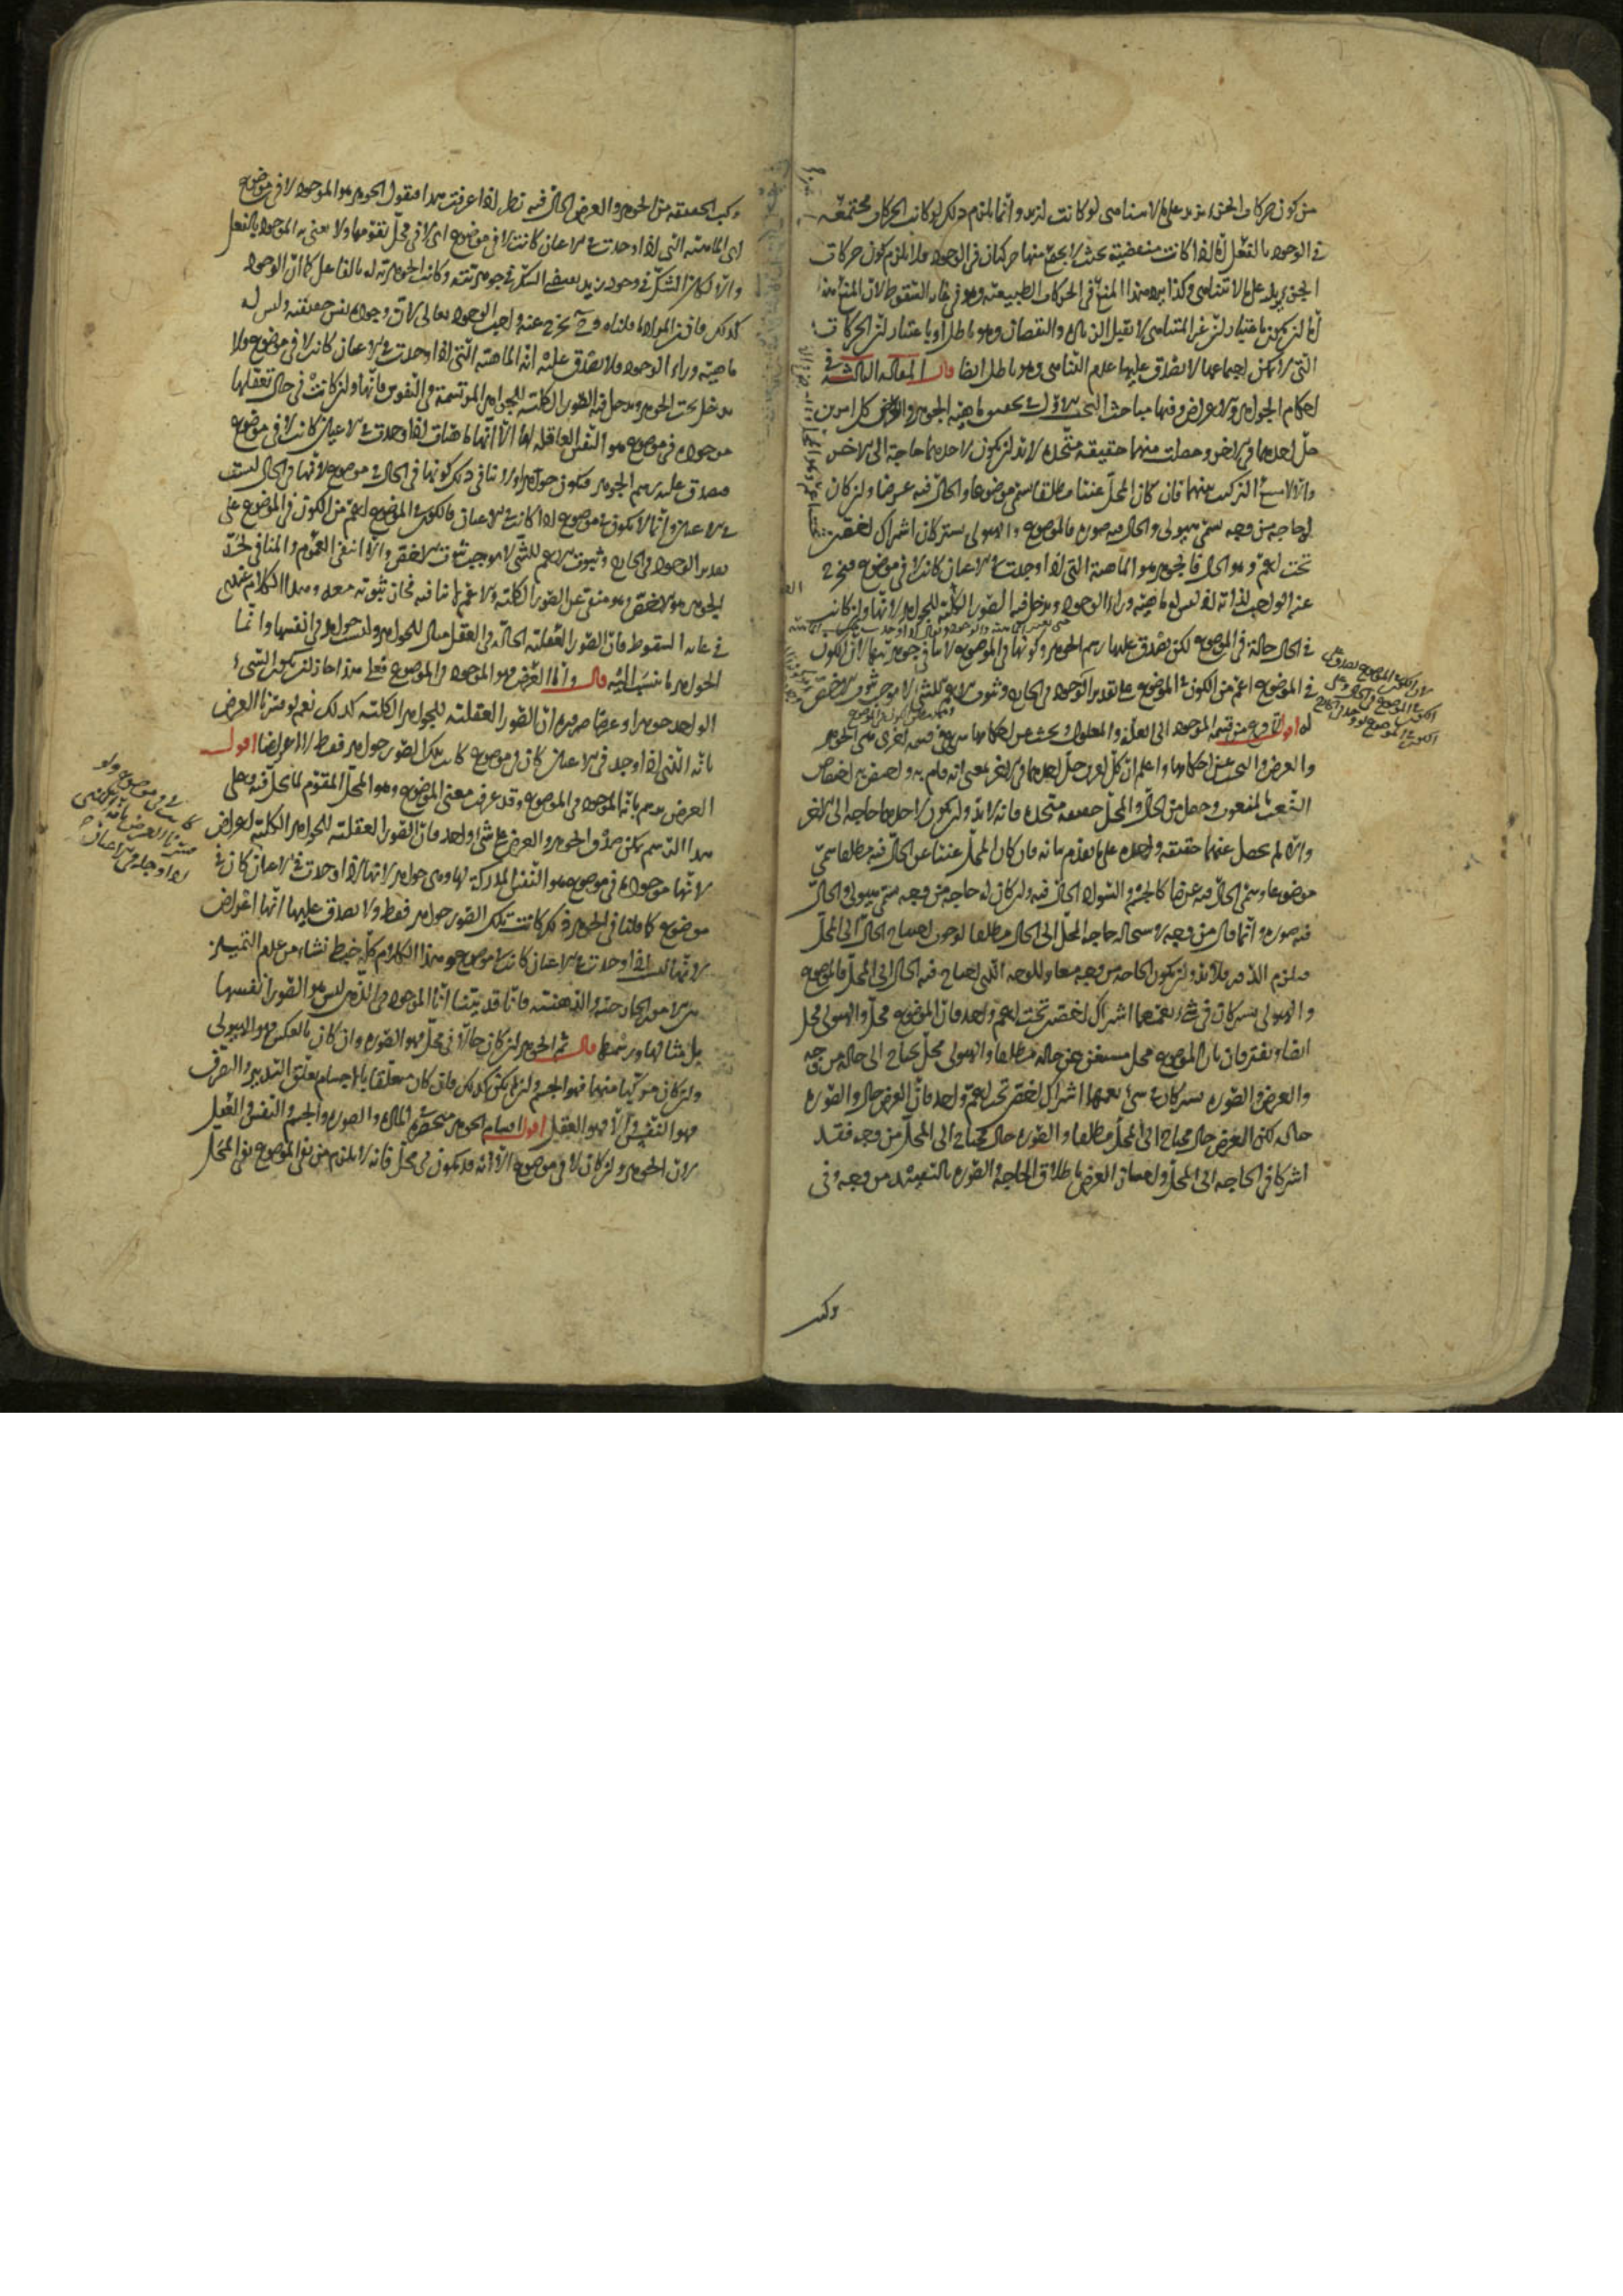 من كون حركات الجن يزيد على ما لا يتناهى لو كانت لتزيد وانما يلزم ذلك لو كانت الحركات مجتمعة
في الوجود بالفعل اما اذا كانت منقضية بحيث لا يجتمع منها حركتان في الوجود فلا يلزم كون حركات
لا يتناهى وكذا يرد هذا المنع في الحركات الطبيعية وهو في غاية السقوط لان المنع هذا
اما ان يكون باعتبار ان غير المتناهي لا يقبل الزيادة والنقصان وهو باطل او باعتبار ان الحركات
التي لا يمكن اجتماعها لا يصدق عليها عدم التناهي وهو باطل ايضا قال المقالة الثالثة في
احكام الجواهر والاعراض وفيها مباحث البحث الاول في تحقيق ماهية الجوهر والعرض كل امرين
حل احدهما في الاخر وحصلت منهما حقيقة متحدة لا بد ان يكون لاحدهما حاجة الى الاخر
والا لامتنع التركيب بينهما فان كان المحل غنيا مطلقا يسمى موضوعا والحال فيه عرضا وان كان
له حاجة من وجه يسمى هيولى والحال فيه صورة فالموضوع والهيولى يشتركان اشتراك اخصين
تحت اعم وهو المحل فالجوهر هو الماهية التي اذا وجدت في الاعيان كانت لا في موضوع فيخرج
عنه الواجب لذاته اذ ليس له ماهية وراء الوجود ويدخل فيه الصور الكلية للجواهر لانها وان كانت
في الحال حالة في الموضوع لكن يصدق عليها رسم الجوهر وكونها في الموضوع لا ينافي جوهريتها لان الكون
في الموضوع اعم من الكون في الموضوع على تقدير الوجود في الخارج وثبوت الاعم للشيء لا يوجب ثبوت الاخص
له اقول لما فرغ من قسمة الموجود الى العلة والمعلول وبحث عن احكامهما شرع في قسمة اخرى وهي الجوهر
والعرض والبحث عن احكامهما واعلم ان كل امرين حل احدهما في الاخر بمعنى انه قام به
النعت بالمنعوت وحصل من الحال والمحل حقيقة متحدة فانه لا بد وان يكون لاحدهما حاجة الى الاخر
والا لم يحصل عنهما حقيقة واحدة على ما تقدم بيانه فان كان المحل غنيا عن الحال فيه مطلقا سمي
موضوعا وسمي الحال فيه عرضا كالجسم والسواد الحال فيه وان كان له حاجة من وجه سمي هيولى والحال
فيه صورة وانما قال من وجه لاستحالة حاجة المحل الى الحال مطلقا لوجوب احتياج الحال الى المحل
فيلزم الدور فلا بد وان يكون الحاجة من وجه مغاير للوجه الذي احتاج فيه الحال الى المحل فالموضوع
والهيولى يشتركان في شيء يعمهما اشتراك اخصين تحت اعم واحد فان الموضوع محل والهيولى محل
ايضا ويفترقان بان الموضوع محل مستغن عن حاله مطلقا والهيولى محل يحتاج الى حاله من وجه
والعرض والصورة يشتركان في شيء يعمهما اشتراك اخصين تحت اعم واحد فان العرض حال والصورة
حالة لكن العرض حال محتاج الى المحل مطلقا والصورة حال محتاج الى المحل من وجه فقد
اشتركا في الحاجة الى المحل وامتاز العرض باطلاق الحاجة والصورة بالتقييد من وجه وفي
وكب
وكب الحقيقة من الجوهر والعرض الحال فيه نظر اذا عرفت هذا فنقول الجوهر هو الموجود لا في موضوع
اي الماهية التي اذا وجدت في الاعيان كانت لا في موضوع اي لا في محل يقومها ولا يعنى به الموجود بالفعل
والا لكان الشك في وجود زيد يقتضي الشك في جوهريته وكانت الجوهرية له بالفاعل كما ان الوجود
كذلك فاذن المراد ما قلناه وح يخرج عنه واجب الوجود تعالى لان وجوده نفس حقيقته وليس له
ماهية وراء الوجود فلا يصدق عليه انه الماهية التي اذا وجدت في الاعيان كانت لا في موضوع ولا
يدخل تحت الجوهر ويدخل فيه الصور الكلية للجواهر المرتسمة في النفوس فانها وان كانت في حال تعقلها
موجودة في موضوع هو النفس العاقلة لها الا انها ماهيات اذا وجدت في الاعيان كانت لا في موضوع
فيصدق عليه رسم الجوهر فتكون جواهر ولا ينافي ذلك كونها في الحال في موضوع لانها في الحال ليست
في الاعيان وانما لا يكون في موضوع اذا كانت في الاعيان فالكون في الموضوع اعم من الكون في الموضوع على
تقدير الوجود في الخارج وثبوت الاعم للشيء لا يوجب ثبوت الاخص والا انتفى العموم والمنافي لحد
الجوهر هو الاخص وهو منتف عن الصور الكلية والاعم لا ينافيه فجاز ثبوته معه وهذا الكلام عندي
في غاية السقوط فان الصور العقلية الحالة في العقل مثال للجواهر وليست جواهر في انفسها وانما
الجواهر ما نسبت اليه قال واما العرض فهو الموجود في الموضوع فعلى هذا جاز ان يكون الشيء
الواحد جوهرا وعرضا ضرورة ان الصور العقلية للجواهر الكلية كذلك نعم لو فسرنا العرض
بانه الذي اذا وجد في الاعيان كان في موضوع كانت تلك الصور جواهر فقط لا اعراضا اقول
العرض رسم بانه الموجود في الموضوع وقد عرفت معنى الموضوع وهو المحل المقوم لما يحل فيه وعلى
هذا الرسم يمكن صدق الجوهر والعرض على شيء واحد فان الصور العقلية للجواهر الكلية اعراض
لانها موجودة في موضوع هو النفس المدركة لها وهي جواهر لانها اذا وجدت في الاعيان كان في
موضوع كما قلنا في الجوهر كانت تلك الصور جواهر فقط ولا يصدق عليها انها اعراض
لانها ليست اذا وجدت في الاعيان كانت في موضوع وهذا الكلام كله خبط نشاء من عدم التمييز
بين الامور الخارجية والذهنية فانا قد بينا ان الموجود في الذهن ليس هو الصور انفسها
بل مثالها ورسمها قال ثم الجوهر ان كان حالا في محل فهو الصورة وان كان بالعكس فهو الهيولى
وان كان مركبا منهما فهو الجسم وان لم يكن كذلك فان كان متعلقا بالاجسام تعلق التدبير والتصرف
فهو النفس والا فهو العقل اقول اقسام الجوهر منحصرة في المادة والصورة والجسم والنفس والعقل
لان الجوهر وان كان لا في موضوع الا انه قد يكون في محل فانه لا يلزم من نفي الموضوع نفي المحل